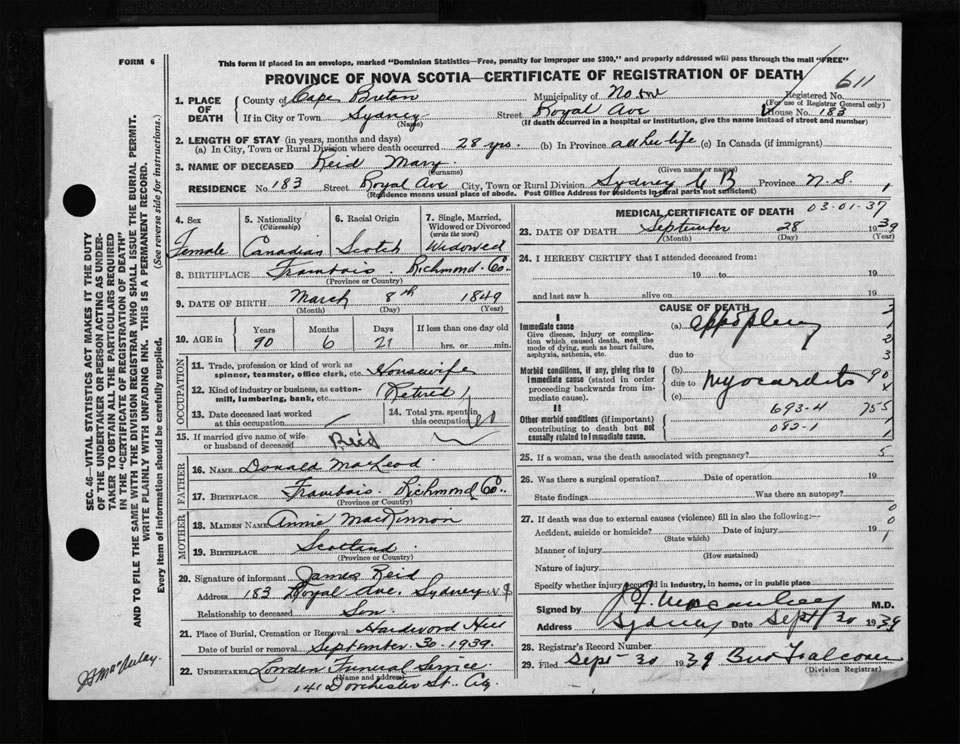 FORM 6
This form if placed in an envelope, marked "Dominion Statistics—Free, penalty for improper use $300," and properly addressed will pass through the mail "FREE"
PROVINCE OF NOVA SCOTIA—CERTIFICATE OF REGISTRATION OF DEATH
611
1. PLACE OF DEATH
County of Cape Breton Municipality of Registered No.
(For use of Registrar General only)
If in City or Town Sydney Street Royal Ave House No. 183
(Name) (If death occurred in a hospital or institution, give the name instead of street and number)
2. LENGTH OF STAY (in years, months and days)
(a) In City, Town or Rural Division where death occurred 28 yrs. (b) In Province all her life (c) In Canada (if immigrant)
3. NAME OF DECEASED Reid Mary
(Surname) (Given name or names)
RESIDENCE No. 183 Street Royal Ave City, Town or Rural Division Sydney C B Province N.S.
(Residence means usual place of abode. Post Office Address for residents in rural parts not sufficient)
4. Sex
Female
5. Nationality
(Citizenship)
Canadian
6. Racial Origin
Scotch
7. Single, Married, Widowed or Divorced
(write the word)
Widowed
8. BIRTHPLACE Frambois. Richmond Co.
(Province or Country)
9. DATE OF BIRTH March 8th 1849
(Month) (Day) (Year)
10. AGE in Years Months Days If less than one day old
90 6 21 hrs. or min.
OCCUPATION
11. Trade, profession or kind of work as spinner, teamster, office clerk, etc. Housewife
12. Kind of industry or business, as cotton-mill, lumbering, bank, etc. Retired
13. Date deceased last worked at this occupation /
14. Total yrs. spent in this occupation
15. If married give name of wife or husband of deceased Reid
FATHER
16. NAME Donald MacLeod
17. BIRTHPLACE Frambois. Richmond Co.
(Province or Country)
MOTHER
18. MAIDEN NAME Annie MacKinnon
19. BIRTHPLACE Scotland
(Province or Country)
20. Signature of informant James Reid
Address 183 Royal Ave. Sydney N.S
Relationship to deceased Son.
21. Place of Burial, Cremation or Removal Hardwood Hill
Date of burial or removal September 30, 1939.
22. UNDERTAKER Funeral Service
(Name and address)
141 Dorchester St. City
MEDICAL CERTIFICATE OF DEATH
03-01-37
23. DATE OF DEATH September 28 1939
(Month) (Day) (Year)
24. I HEREBY CERTIFY that I attended deceased from:
19 to 19
and last saw h alive on 19
CAUSE OF DEATH
I
Immediate cause
Give disease, injury or complication which caused death, not the mode of dying, such as heart failure, asphyxia, asthenia, etc.
(a)
due to
Morbid conditions, if any, giving rise to immediate cause (stated in order proceeding backwards from immediate cause).
(b)
due to Myocardits
(c)
II
Other morbid conditions (if important) contributing to death but not causally related to immediate cause.
693-4
082-1
25. If a woman, was the death associated with pregnancy?
26. Was there a surgical operation? Date of operation 19
State findings Was there an autopsy?
27. If death was due to external causes (violence) fill in also the following:—
Accident, suicide or homicide? Date of injury 19
(State which)
Manner of injury
(How sustained)
Nature of injury
Specify whether injury occurred in industry, in home, or in public place
Signed by M.D.
Address Sydney Date Sept 30 1939
28. Registrar's Record Number
29. Filed Sept-30 1939
(Division Registrar)
SEC. 46—VITAL STATISTICS ACT MAKES IT THE DUTY
OF THE UNDERTAKER OR PERSON ACTING AS UNDER-
TAKER TO OBTAIN ALL THE PARTICULARS REQUIRED
IN THE "CERTIFICATE OF REGISTRATION OF DEATH"
AND TO FILE THE SAME WITH THE DIVISION REGISTRAR WHO SHALL ISSUE THE BURIAL PERMIT.
WRITE PLAINLY WITH UNFADING INK. THIS IS A PERMANENT RECORD.
Every item of information should be carefully supplied. (See reverse side for instructions.)